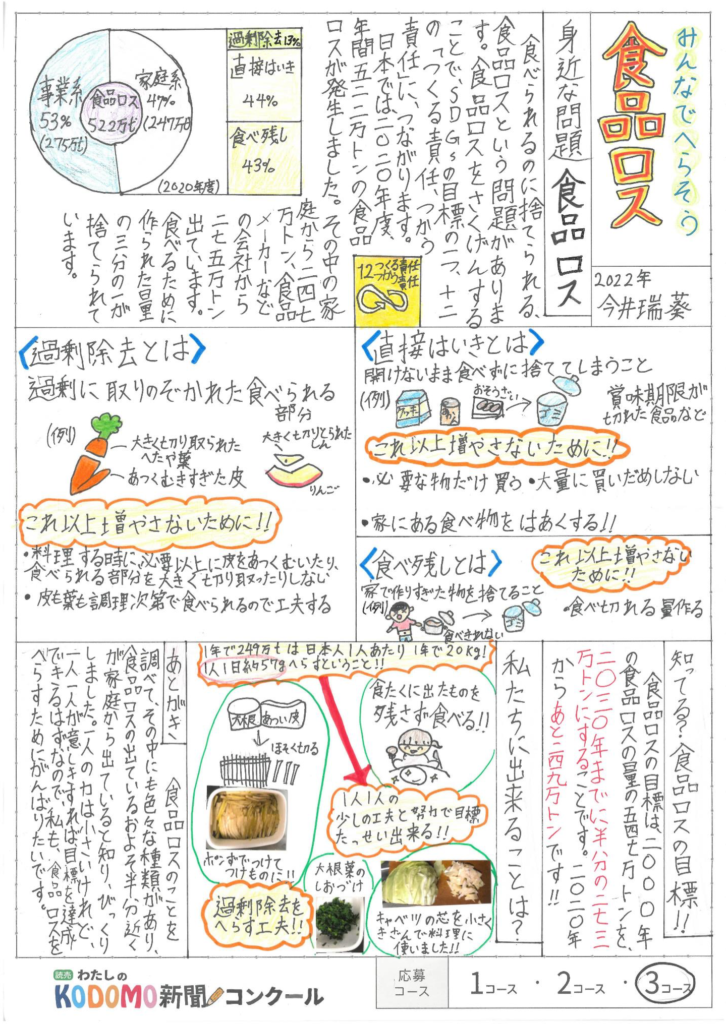 みんなでへらそう
食品ロス
2022年
今井瑞葵
身近な問題 食品ロス
食べられるのに捨てられる、
食品ロスという問題がありま
す。食品ロスをさくげんする
ことで、SDGsの目標の一つ、十二
の「つくる責任、つかう
責任」に、つながります。
日本では二〇二〇年度、
年間五二二万トンの食品
ロスが発生しました。その中の家
庭から二四七
万トン、食品
メーカーなど
の会社から
二七五万トン
出ています。
食べるために
作られた量
の三分の一が
捨てられて
います。
12 つくる責任
つかう責任
事業系
53%
(275万t)
食品ロス
522万t
家庭系
47%
(247万t)
(2020年度)
過剰除去13%
直接はいき
44%
食べ残し
43%
《直接はいきとは》
開けないまま食べずに捨ててしまうこと
(例)
クッキー
おそうざい
ゴミ
賞味期限が
切れた食品など
これ以上増やさないために!!
・必要な物だけ買う ・大量に買いだめしない
・家にある食べ物をはあくする!!
《過剰除去とは》
過剰に取りのぞかれた食べられる
部分
(例)
大きく切り取られた
へたや葉
あつくむきすぎた皮
大きく切りとられた
しん
りんご
これ以上増やさないために!!
・料理する時に、必要以上に皮をあつくむいたり、
食べられる部分を大きく切り取ったりしない
・皮も葉も調理次第で食べられるので工夫する
《食べ残しとは》
家で作りすぎた物を捨てること
(例)
食べきれない
ゴミ
これ以上増やさない
ために!!
・食べ切れる量作る
知ってる?食品ロスの目標!!
食品ロスの目標は、二〇〇〇年
の食品ロスの量の五四七万トンを、
二〇三〇年までに半分の二七三
万トンにすることです。二〇二〇年
からあと二四九万トンです!!
私たちに出来ることは?
1年で249万tは日本人1人あたり1年で20kg!
1人1日約57gへらすということ!!
食たくに出たものを
残さず食べる!!
1人1人の
少しの工夫と努力で目標
たっせい出来る!!
大根
あつい皮
ほそくきる
ポンずでつけて
つけものに!!
過剰除去を
へらす工夫!!
大根葉の
しおづけ
キャベツの芯を小さく
きざんで料理に
使いました!!
あとがき
食品ロスのことを
調べて、その中にも色々な種類があり、
食品ロスの出ているおよそ半分近く
が家庭から出ていると知り、びっくり
しました。一人の力は小さいけれど、
一人一人が意しきすれば目標を達成
できるはずなので、私も、食品ロスを
へらすためにがんばりたいです。
読売 わたしの
KODOMO新聞コンクール
応募
コース
1コース ・ 2コース ・ 3コース